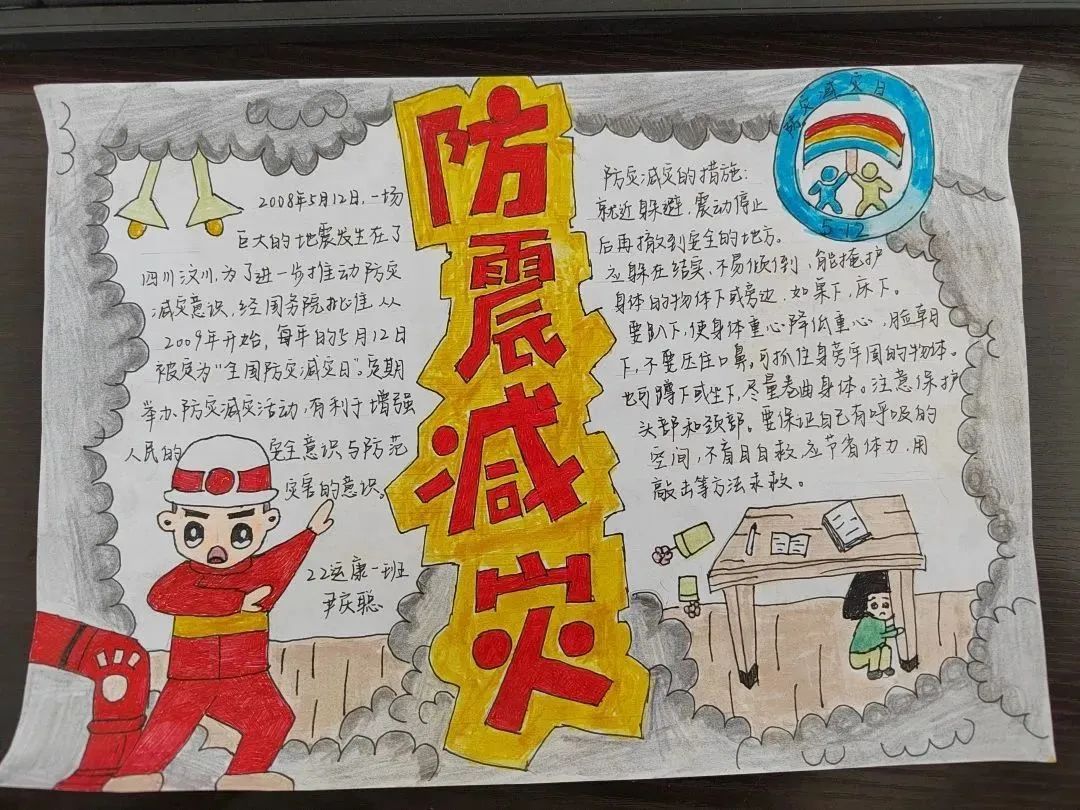 防震减灾
2008年5月12日，一场
巨大的地震发生在了
四川汶川，为了进一步推动防灾
减灾意识，经国务院批准，从
2009年开始，每年的5月12日
被定为“全国防灾减灾日”。定期
举办防灾减灾活动，有利于增强
人民的安全意识与防范
灾害的意识。
22运康一班
尹庆聪
防灾减灾日
5·12
防灾减灾的措施：
就近躲避，震动停止
后再撤到安全的地方。
应躲在结实、不易倾倒、能掩护
身体的物体下或旁边，如果下，床下。
要趴下，使身体重心降低重心，脸朝
下，不要压住口鼻，可抓住身旁牢固的物体。
也可蹲下或坐下，尽量卷曲身体。注意保护
头部和颈部。要保证自己有呼吸的
空间，不盲目自救，应节省体力，用
敲击等方法求救。